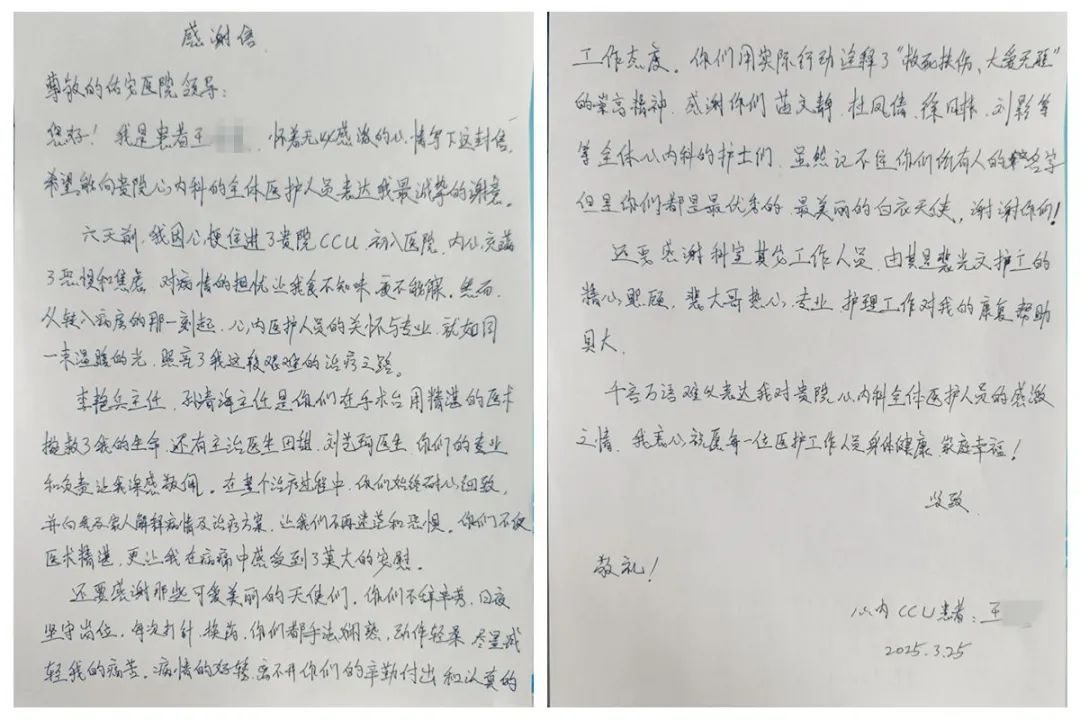 感谢信
尊敬的佑安医院领导：
您好！我是患者王 怀着无比感激的心情写下这封信，
希望能向贵院心内科的全体医护人员表达我最诚挚的谢意。
六天前，我因心梗住进了贵院CCU 初入医院，内心充满
了恐惧和焦虑，对病情的担忧让我食不知味 夜不能寐。然而，
从转入病房的那一刻起，心内医护人员的关怀与专业，就如同
一束温暖的光，照亮了我这段艰难的治疗之路。
李艳兵主任，孙清海主任是你们在手术台用精湛的医术
拯救了我的生命，还有主治医生田 刘艺 医生，你们的专业
和负责让我深感敬佩。在整个治疗过程中，你们始终耐心细致，
并向我及家人解释病情及治疗方案，让我们不再迷茫和恐惧。你们不仅
医术精湛，更让我在病痛中感受到了莫大的安慰。
还要感谢那些可爱美丽的天使们，你们不辞辛劳，日夜
坚守岗位，每次打针 换药，你们都手法娴熟，动作轻柔 尽量减
轻我的病苦。病情的好转 离不开你们的辛勤付出和认真的
工作态度。你们用实际行动诠释了“救死扶伤、大爱无疆”
的崇高精神。感谢你们 苗文静，杜凤倩，徐 刘影等
等全体心内科的护士们，虽然记不住你们所有人的名字
但是你们都是最优秀的 最美丽的白衣天使，谢谢你们！
还要感谢科室其它工作人员，由其是裴光文护工的
精心照顾，裴大哥热心，专业，护理工作对我的康复帮助
具大。
千言万语难以表达我对贵院心内科全体医护人员的感激
之情，我衷心祝愿每一位医护工作人员身体健康，家庭幸福！
此致
敬礼！
心内CCU患者：王
2025.3.25